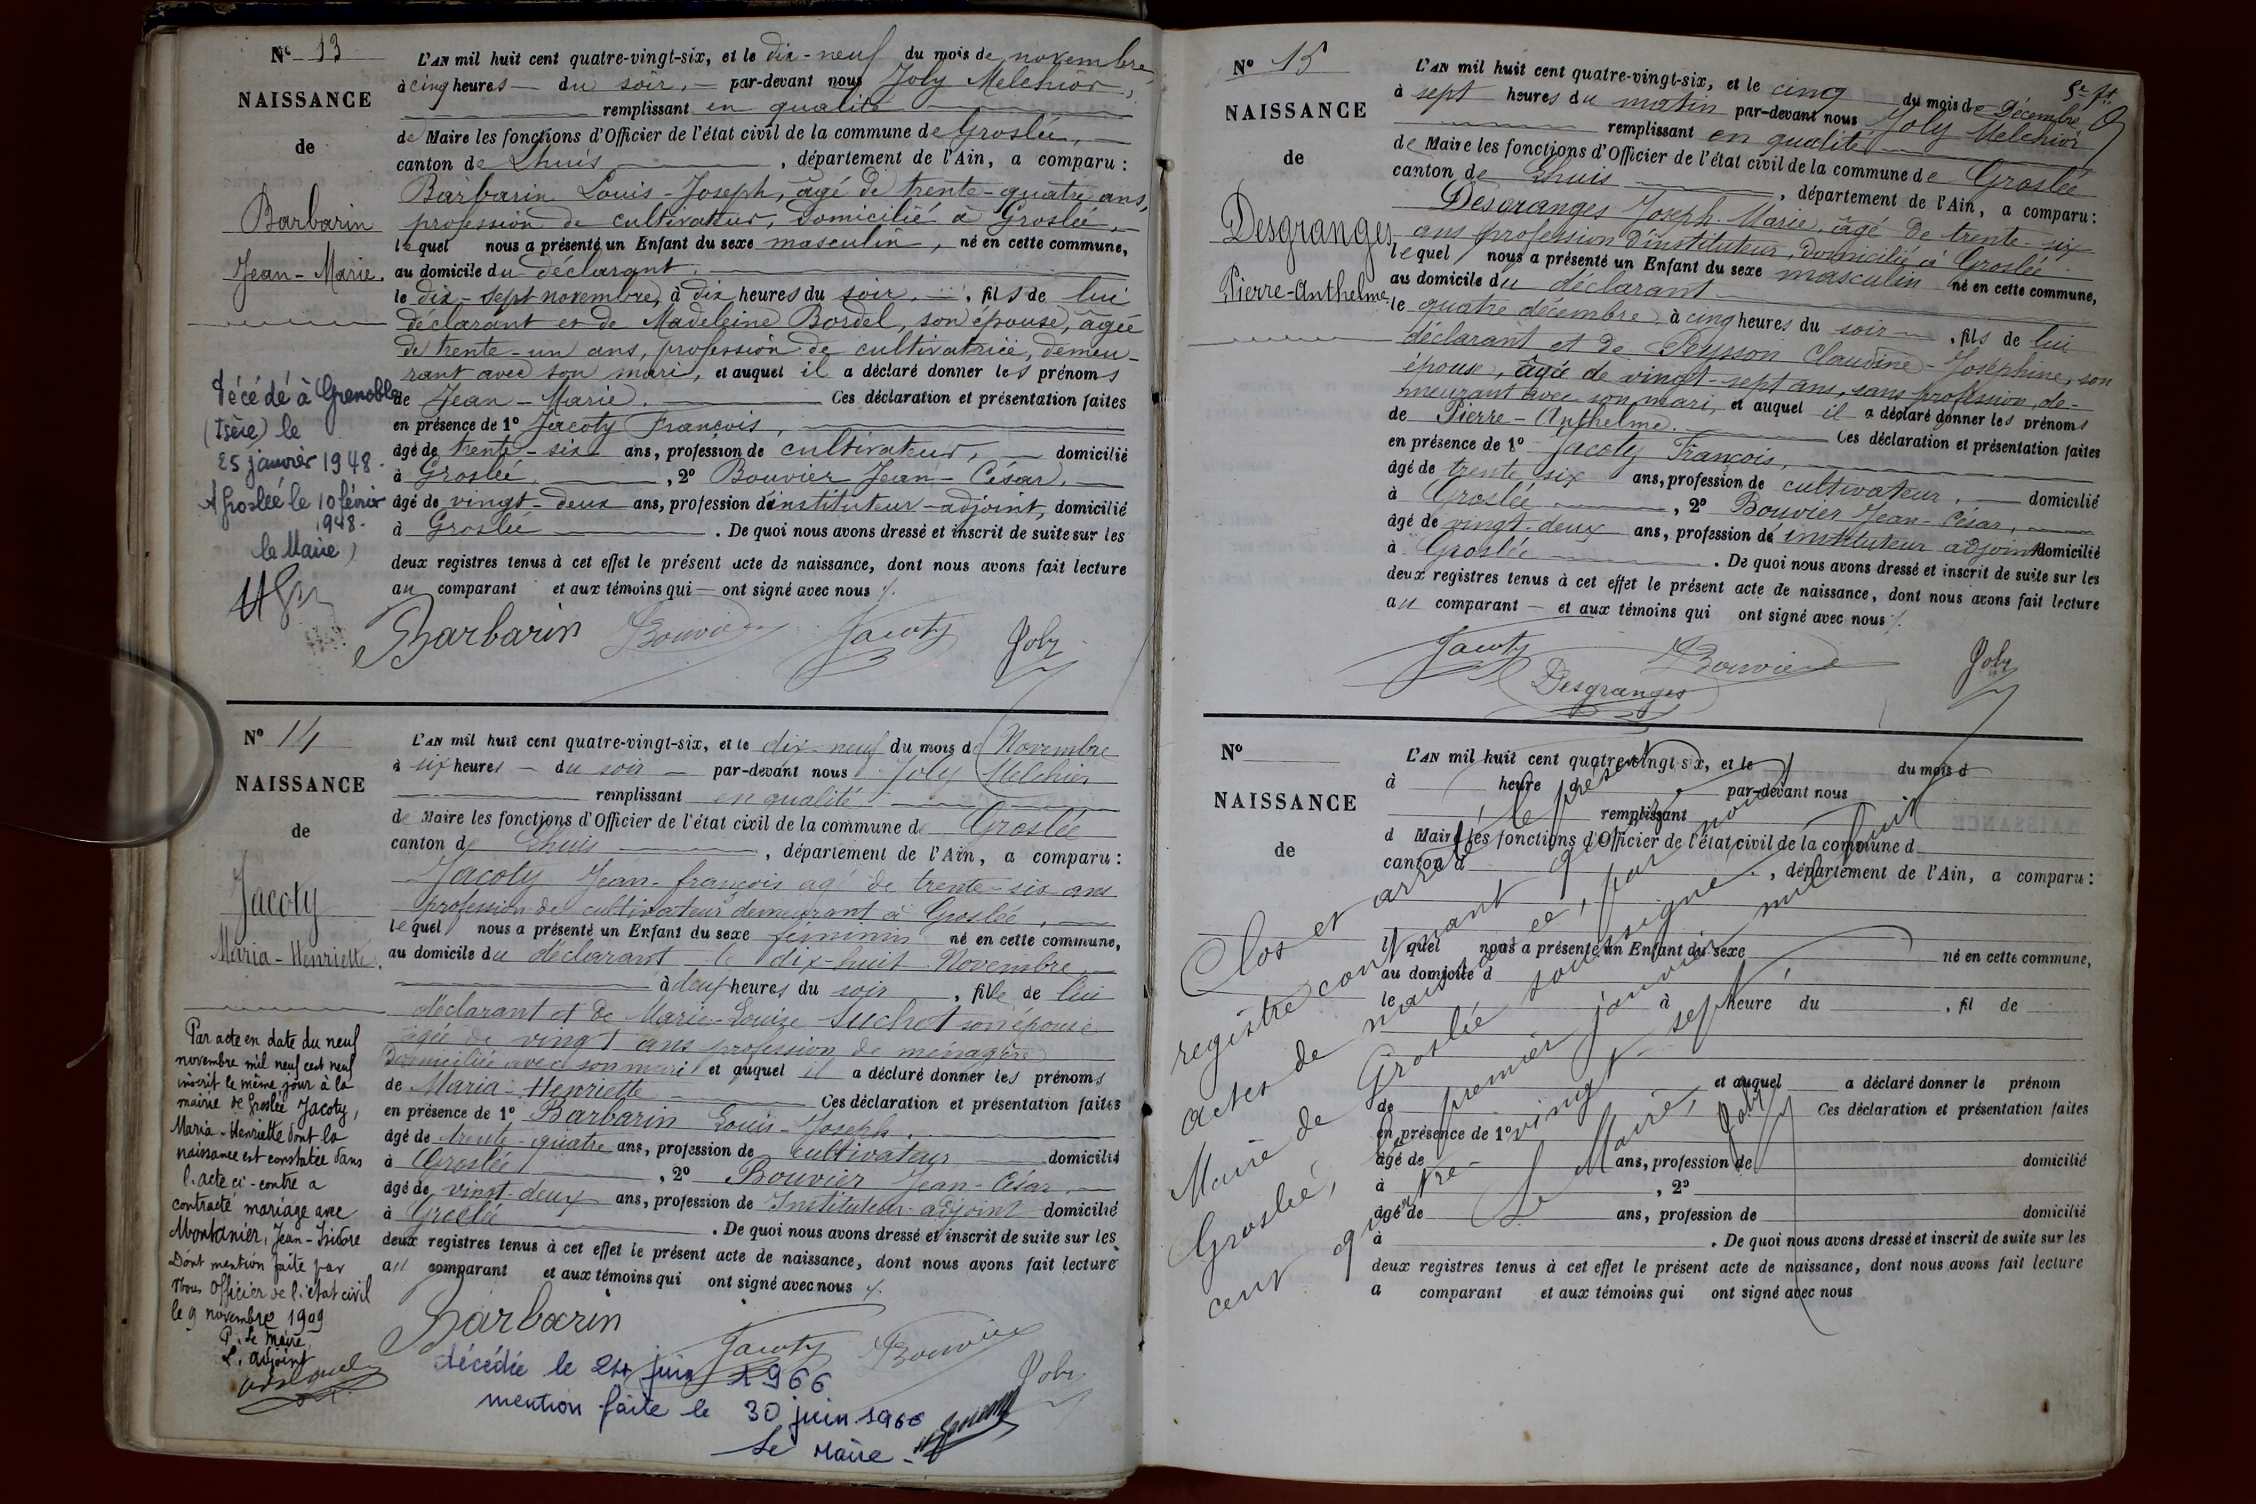 Nº 13
NAISSANCE
de
Barbarin
Jean-Marie.
L'AN mil huit cent quatre-vingt-six, et le dix-neuf du mois de novembre,
à cinq heures du soir, par-devant nous Joly Melchior,
remplissant en qualité
de Maire les fonctions d'Officier de l'état civil de la commune de Groslée,
canton de Lhuis, département de l'Ain, a comparu :
Barbarin Louis-Joseph, âgé de trente-quatre ans,
profession de cultivateur, domicilié à Groslée,
lequel nous a présenté un Enfant du sexe masculin, né en cette commune,
au domicile du déclarant.
le dix-sept novembre, à dix heures du soir, fils de lui
déclarant et de Madeleine Bordel, son épouse, âgée
de trente-un ans, profession de cultivatrice, demeu-
rant avec son mari, et auquel il a déclaré donner les prénoms
de Jean-Marie. Ces déclaration et présentation faites
en présence de 1º Jacoty François,
âgé de trente-six ans, profession de cultivateur, domicilié
à Groslée, 2º Bouvier Jean-César,
âgé de vingt-deux ans, profession d'instituteur-adjoint, domicilié
à Groslée. De quoi nous avons dressé et inscrit de suite sur les
deux registres tenus à cet effet le présent acte de naissance, dont nous avons fait lecture
au comparant et aux témoins qui ont signé avec nous
Barbarin Bouvier Jacoty Joly
Décédé à Grenoble
(Isère) le
25 janvier 1948.
A Groslée le 10 février
1948.
le Maire,
Nº 14
NAISSANCE
de
Jacoty
Maria-Henriette.
L'AN mil huit cent quatre-vingt-six, et le dix-neuf du mois de Novembre
à six heures du soir par-devant nous Joly Melchior
remplissant en qualité
de Maire les fonctions d'Officier de l'état civil de la commune de Groslée
canton de Lhuis, département de l'Ain, a comparu :
Jacoty Jean-françois agé de trente-six ans
profession de cultivateur demeurant à Groslée,
lequel nous a présenté un Enfant du sexe féminin né en cette commune,
au domicile du déclarant le dix-huit Novembre
à deux heures du soir, fille de lui
déclarant et de Marie-Louise Suchet son épouse
agée de vingt ans profession de ménagère
Domiciliée avec son mari et auquel il a déclaré donner les prénoms
de Maria-Henriette Ces déclaration et présentation faites
en présence de 1º Barbarin Louis-Joseph,
âgé de trente-quatre ans, profession de cultivateur domicilié
à Groslée, 2º Bouvier Jean-César,
âgé de vingt-deux ans, profession de Instituteur-adjoint domicilié
à Groslée. De quoi nous avons dressé et inscrit de suite sur les
deux registres tenus à cet effet le présent acte de naissance, dont nous avons fait lecture
au comparant et aux témoins qui ont signé avec nous
Barbarin Jacoty Bouvier Joly
Par acte en date du neuf
novembre mil neuf cent neuf
inscrit le même jour à la
mairie de Groslée Jacoty,
Maria-Henriette dont la
naissance est constatée dans
l'acte ci-contre a
contracté mariage avec
Montanier, Jean-Isidore
Dont mention faite par
Nous Officier de l'état civil
le 9 novembre 1909
P. Le Maire
L'adjoint
décédée le 24 juin 1966
mention faite le 30 juin 1966
Le Maire
5e ft
Nº 15
NAISSANCE
de
Desgranges
Pierre-Anthelme
L'AN mil huit cent quatre-vingt-six, et le cinq du mois de Décembre
à sept heures du matin par-devant nous Joly Melchior
remplissant en qualité
de Maire les fonctions d'Officier de l'état civil de la commune de Groslée
canton de Lhuis, département de l'Ain, a comparu :
Desgranges Joseph-Marie, âgé de trente-six
ans profession d'instituteur, domicilié à Groslée
lequel nous a présenté un Enfant du sexe masculin né en cette commune,
au domicile du déclarant
le quatre décembre, à cinq heures du soir, fils de lui
déclarant et de Peysson Claudine-Joséphine, son
épouse, âgée de vingt-sept ans, sans profession, de-
meurant avec son mari, et auquel il a déclaré donner les prénoms
de Pierre-Anthelme. Ces déclaration et présentation faites
en présence de 1º Jacoty François,
âgé de trente six ans, profession de cultivateur, domicilié
à Groslée, 2º Bouvier Jean-César,
âgé de vingt-deux ans, profession de instituteur adjoint domicilié
à Groslée. De quoi nous avons dressé et inscrit de suite sur les
deux registres tenus à cet effet le présent acte de naissance, dont nous avons fait lecture
au comparant et aux témoins qui ont signé avec nous
Jacoty Bouvier Joly
Desgranges
Nº
NAISSANCE
de
L'AN mil huit cent quatre-vingt-six, et le du mois d
à heure par-devant nous
remplissant
d Maire les fonctions d'Officier de l'état civil de la commune d
canton d , département de l'Ain, a comparu :
l quel nous a présenté un Enfant du sexe né en cette commune,
au domicile d
le à heure du , fil de
et auquel a déclaré donner le prénom
de Ces déclaration et présentation faites
en présence de 1º
âgé de ans, profession de domicilié
à , 2º
âgé de ans, profession de domicilié
à . De quoi nous avons dressé et inscrit de suite sur les
deux registres tenus à cet effet le présent acte de naissance, dont nous avons fait lecture
a comparant et aux témoins qui ont signé avec nous
Clos et arrêté le présent
registre contenant quinze
actes de naissance, par nous
Maire de Groslée soussigné
Groslée, le premier janvier mil huit
cent quatre-vingt-sept
Le Maire,
Joly